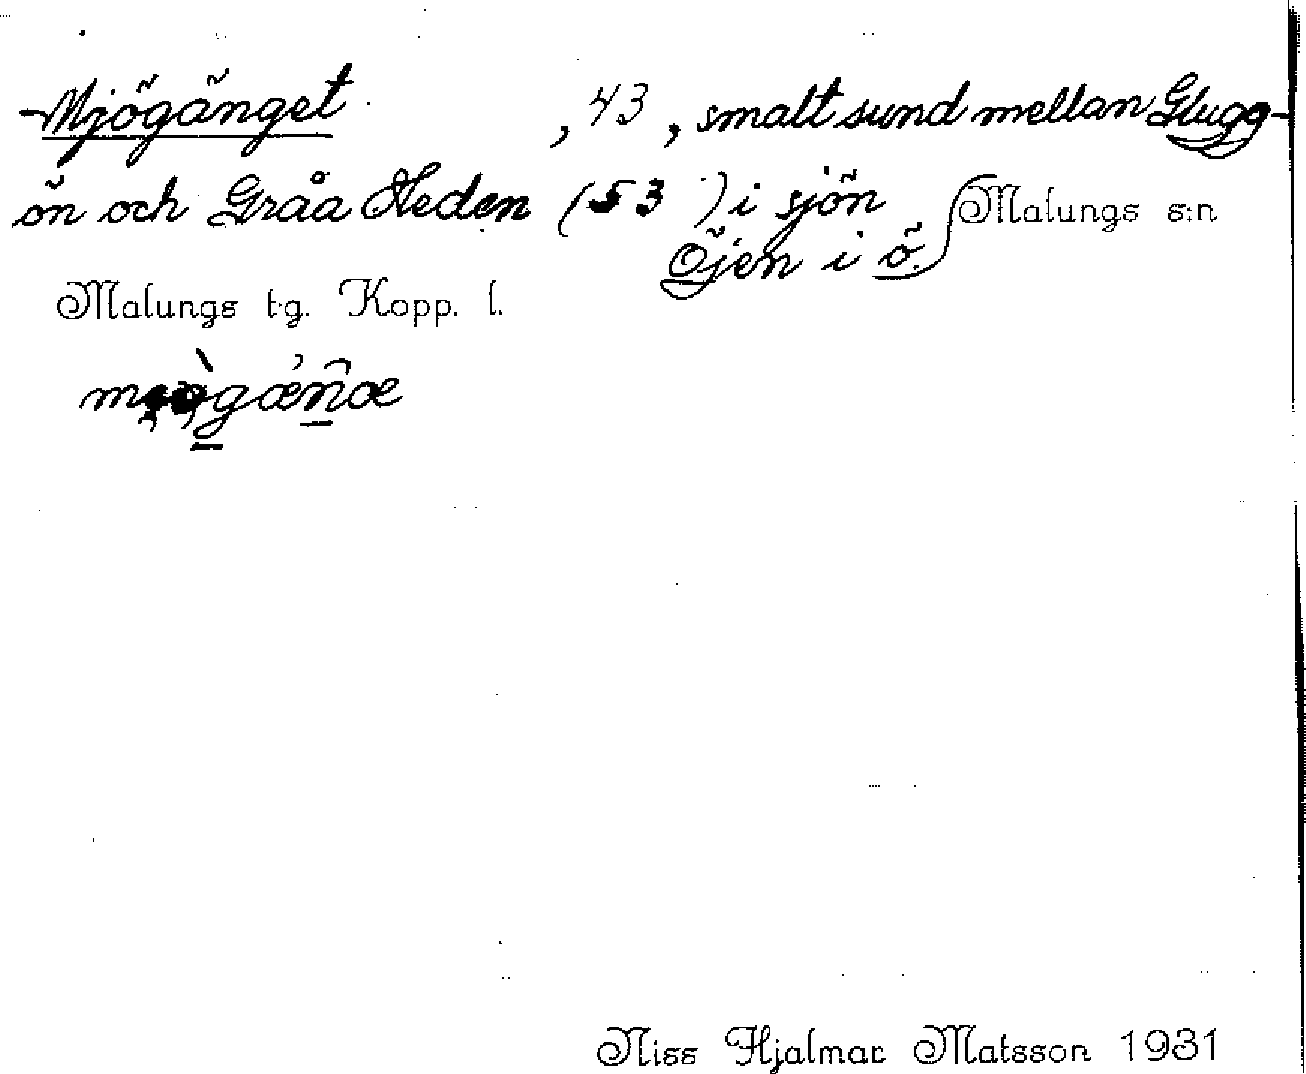 -Mjögänget, 43, smalt sund mellan Glugg-
ön och Gråa Heden (53) i sjön Malungs s:n
Öjen i ö.
Malungs tg. Kopp. l.
Niss Hjalmar Matsson 1931